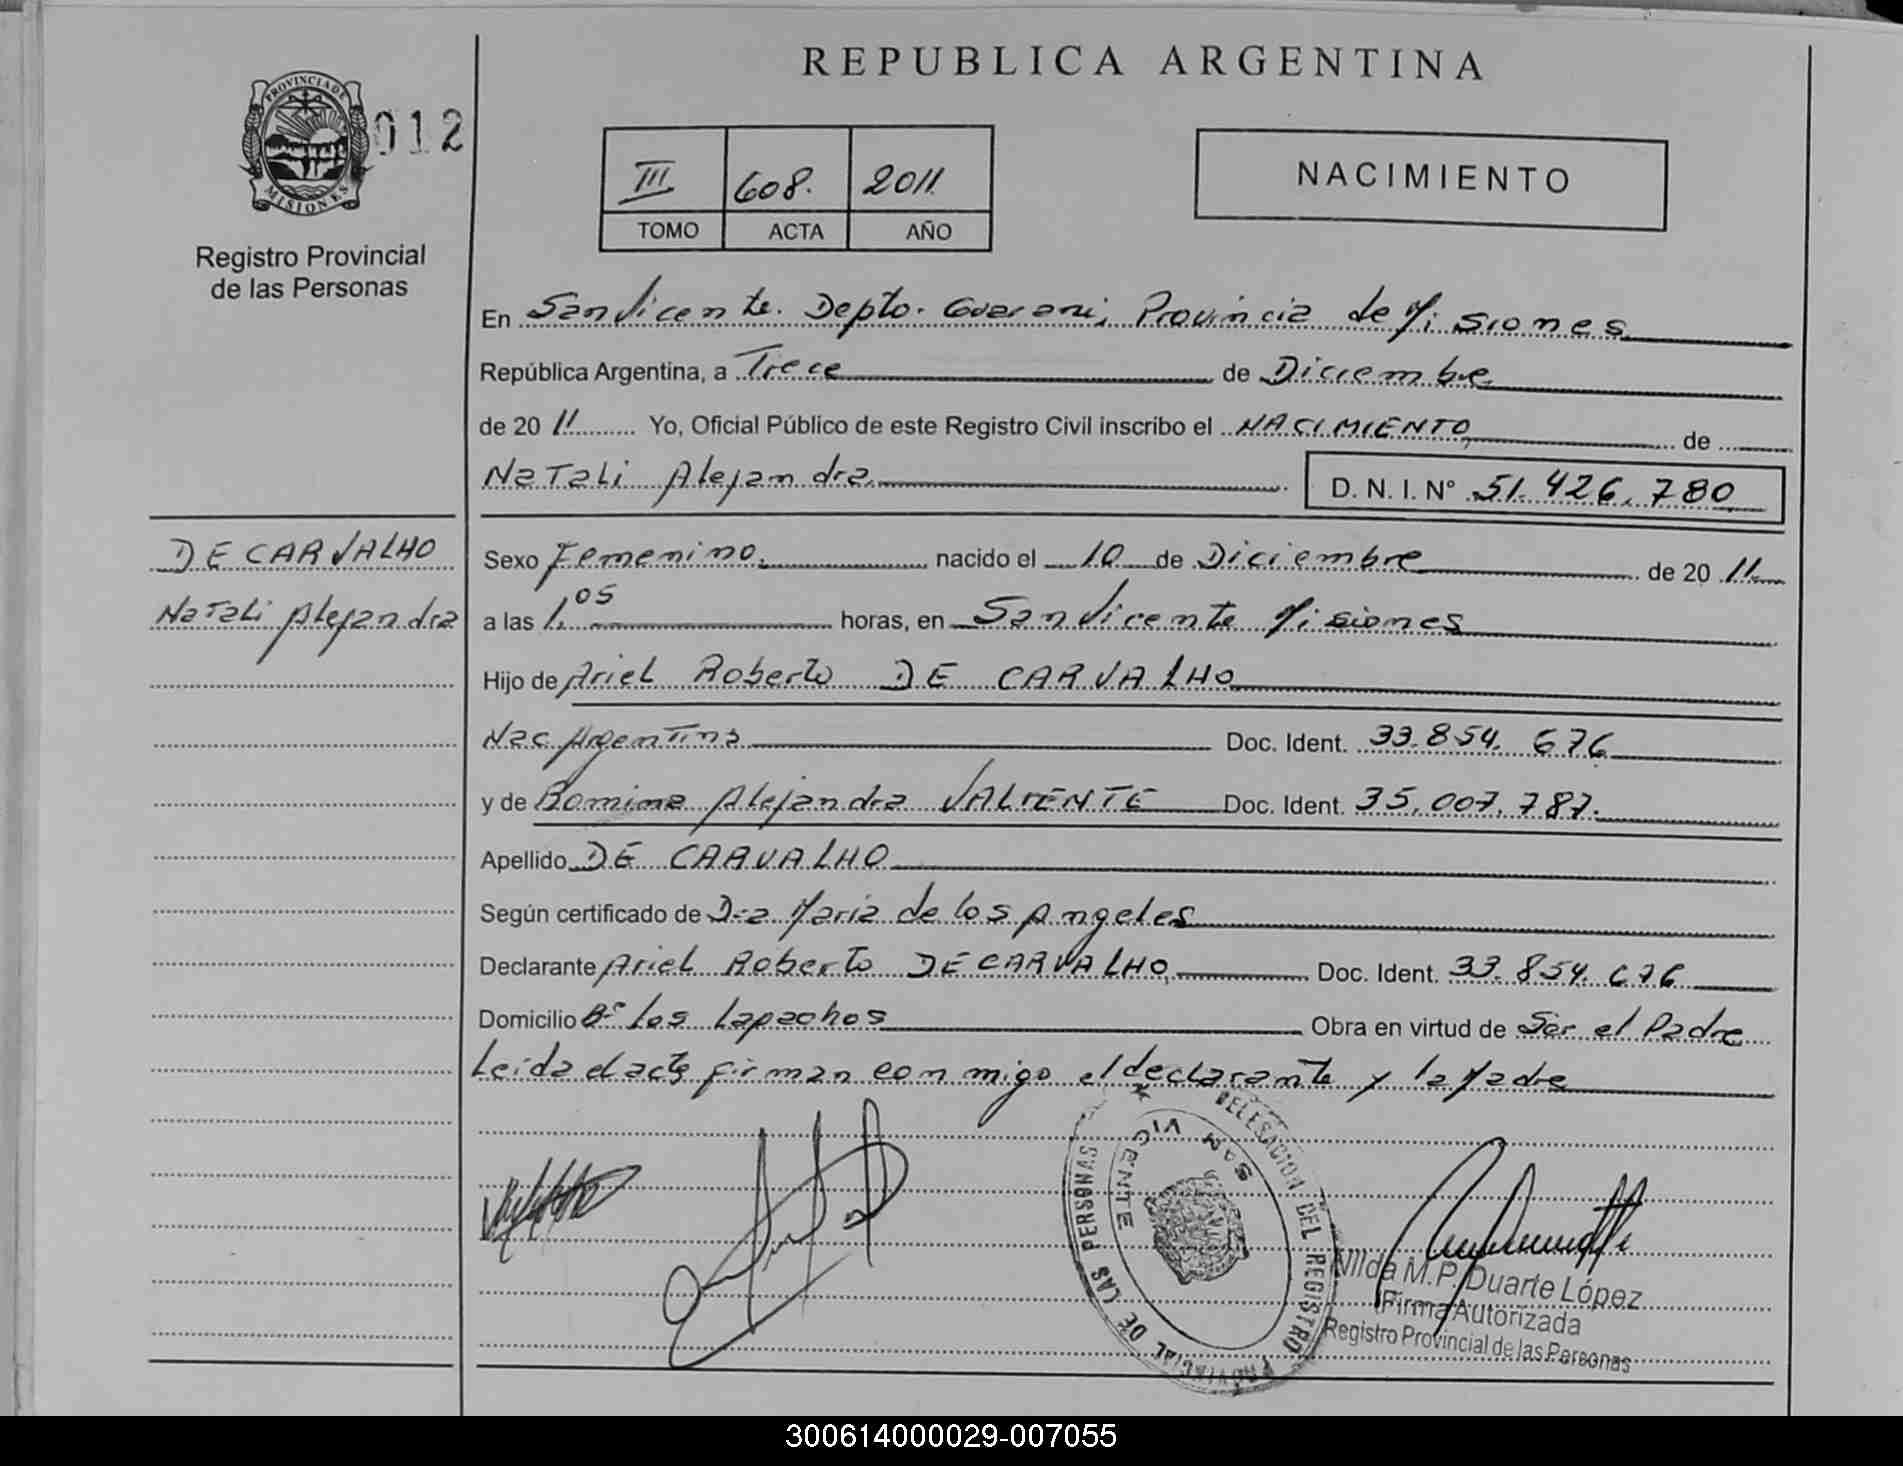 REPUBLICA ARGENTINA
PROVINCIA DE
MISIONES
012
Registro Provincial
de las Personas
III 608. 2011.
TOMO ACTA AÑO
NACIMIENTO
En San Vicente. Depto. Guarani, Provincia de Misiones
República Argentina, a Trece de Diciembre
de 20 11 Yo, Oficial Público de este Registro Civil inscribo el NACIMIENTO de
Natali Alejandra D. N. I. N° 51.426.780
DE CARVALHO
Natali Alejandra
Sexo Femenino. nacido el 10 de Diciembre de 20 11
a las 1.05 horas, en San Vicente Misiones
Hijo de Ariel Roberto DE CARVALHO
Nac Argentina Doc. Ident. 33.854.676
y de Romina Alejandra VALIENTE Doc. Ident. 35.007.787.
Apellido DE CARVALHO
Según certificado de Dra Maria de los Angeles
Declarante Ariel Roberto DE CARVALHO, Doc. Ident. 33.854.676
Domicilio B° Los Lapachos Obra en virtud de Ser el Padre
Leida el acta firman conmigo el declarante y la Madre
DELEGACION DEL REGISTRO PROVINCIAL DE LAS PERSONAS
SAN VICENTE
Nilda M.P. Duarte López
Firma Autorizada
Registro Provincial de las Personas
300614000029-007055